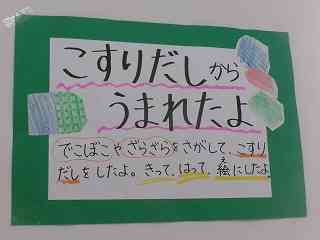 こすりだしから
うまれたよ
でこぼこや、ざらざらをさがして、こすり
だしをしたよ。きって、はって、絵にしたよ